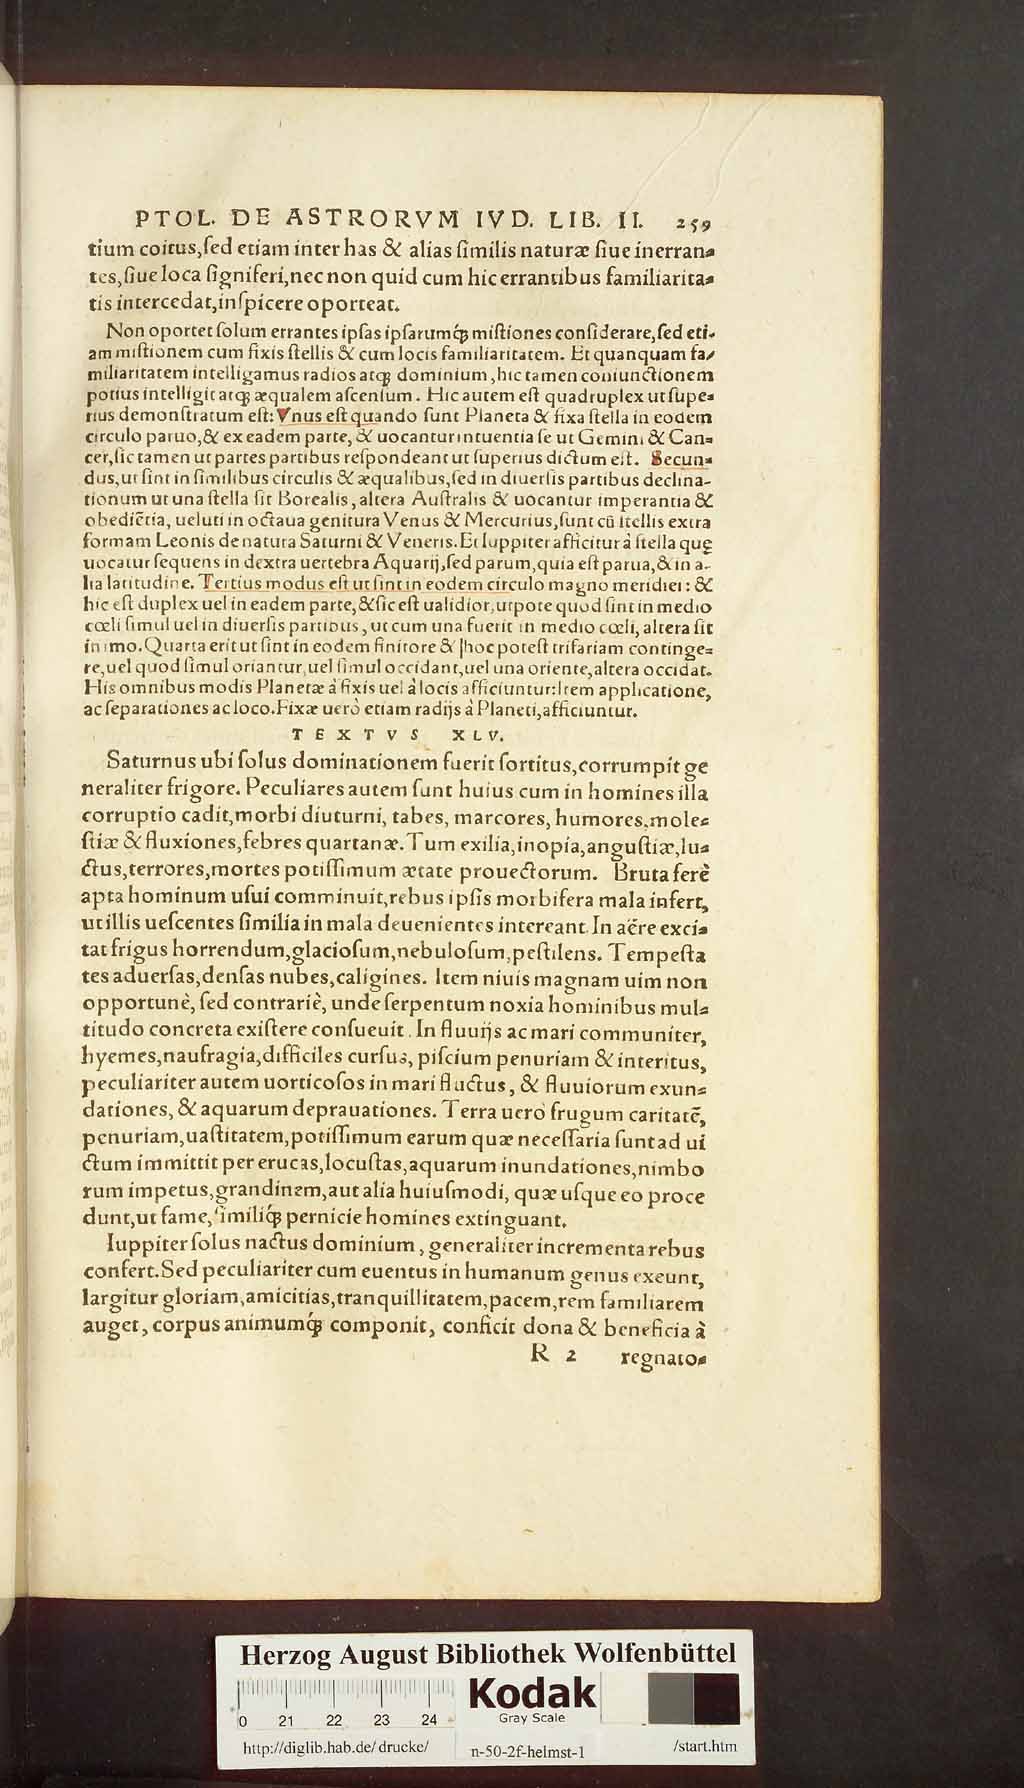 PTOL. DE ASTRORVM IVD. LIB. II. 259
tium coitus,ſed etiam inter has & alias ſimilis naturæ ſiue inerran⸗
tes,ſiue loca ſigniferi,nec non quid cum hic errantibus familiarita⸗
tis intercedat,inſpicere oporteat.
Non oportet ſolum errantes ipſas ipſarumq́ꝫ miſtiones conſiderare,ſed eti⸗
am miſtionem cum fixis ſtellis & cum locis familiaritatem. Et quanquam fa⸗
miliaritatem intelligamus radios atqꝫ dominium,hic tamen coniunctionem
potius intelligit atqꝫ æqualem aſcenſum. Hic autem eſt quadruplex ut ſupe⸗
rius demonſtratum eſt: Vnus eſt quando ſunt Planeta & fixa ſtella in eodem
circulo paruo,& ex eadem parte, & uocantur intuentia ſe ut Gemini & Can⸗
cer,ſic tamen ut partes partibus reſpondeant ut ſuperius dictum eſt. Secun⸗
dus,ut ſint in ſimilibus circulis & æqualibus,ſed in diuerſis partibus declina⸗
tionum ut una ſtella ſit Borealis, altera Auſtralis & uocantur imperantia &
obediẽtia, ueluti in octaua genitura Venus & Mercurius,ſunt cũ ſtellis extra
formam Leonis de natura Saturni & Veneris. Et Iuppiter afficitur à ſtella quę
uocatur ſequens in dextra uertebra Aquarij,ſed parum,quia eſt parua,& in a⸗
lia latitudine. Tertius modus eſt ut ſint in eodem circulo magno meridiei: &
hic eſt duplex uel in eadem parte,& ſic eſt ualidior,utpote quod ſint in medio
cœli ſimul uel in diuerſis partibus, ut cum una fuerit in medio cœli, altera ſit
in imo. Quarta erit ut ſint in eodem finitore & hoc poteſt trifariam continge⸗
re,uel quod ſimul oriantur,uel ſimul occidant,uel una oriente,altera occidat.
His omnibus modis Planetæ à fixis uel à locis afficiuntur: Item applicatione,
ac ſeparationes ac loco. Fixæ uerò etiam radijs à Planeti,afficiuntur.
TEXTVS XLV.
Saturnus ubi ſolus dominationem fuerit ſortitus,corrumpit ge
neraliter frigore. Peculiares autem ſunt huius cum in homines illa
corruptio cadit,morbi diuturni, tabes, marcores, humores,mole⸗
ſtiæ & fluxiones,febres quartanæ. Tum exilia,inopia,anguſtiæ,lu⸗
ctus,terrores,mortes potiſſimum ætate prouectorum. Bruta ferè
apta hominum uſui comminuit,rebus ipſis morbifera mala infert,
ut illis ueſcentes ſimilia in mala deuenientes intereant. In aëre exci⸗
tat frigus horrendum,glacioſum,nebuloſum,peſtilens. Tempeſta
tes aduerſas,denſas nubes,caligines. Item niuis magnam uim non
opportunè, ſed contrariè, unde ſerpentum noxia hominibus mul⸗
titudo concreta exiſtere conſueuit. In fluuijs ac mari communiter,
hyemes,naufragia,difficiles curſus, piſcium penuriam & interitus,
peculiariter autem uorticoſos in mari fluctus, & fluuiorum exun⸗
dationes, & aquarum deprauationes. Terra uerò frugum caritatẽ,
penuriam,uaſtitatem,potiſſimum earum quæ neceſſaria ſunt ad ui
ctum immittit per erucas,locuſtas,aquarum inundationes,nimbo
rum impetus,grandinem,aut alia huiuſmodi, quæ uſque eo proce
dunt,ut fame, ſimiliq́ꝫ pernicie homines extinguant.
Iuppiter ſolus nactus dominium, generaliter incrementa rebus
confert. Sed peculiariter cum euentus in humanum genus exeunt,
largitur gloriam,amicitias,tranquillitatem,pacem,rem familiarem
auget, corpus animumq́ꝫ componit, conficit dona & beneficia à
R 2 regnato⸗
Herzog August Bibliothek Wolfenbüttel
Kodak
Gray Scale
0 21 22 23 24
http://diglib.hab.de/drucke/ n-50-2f-helmst-1 /start.htm